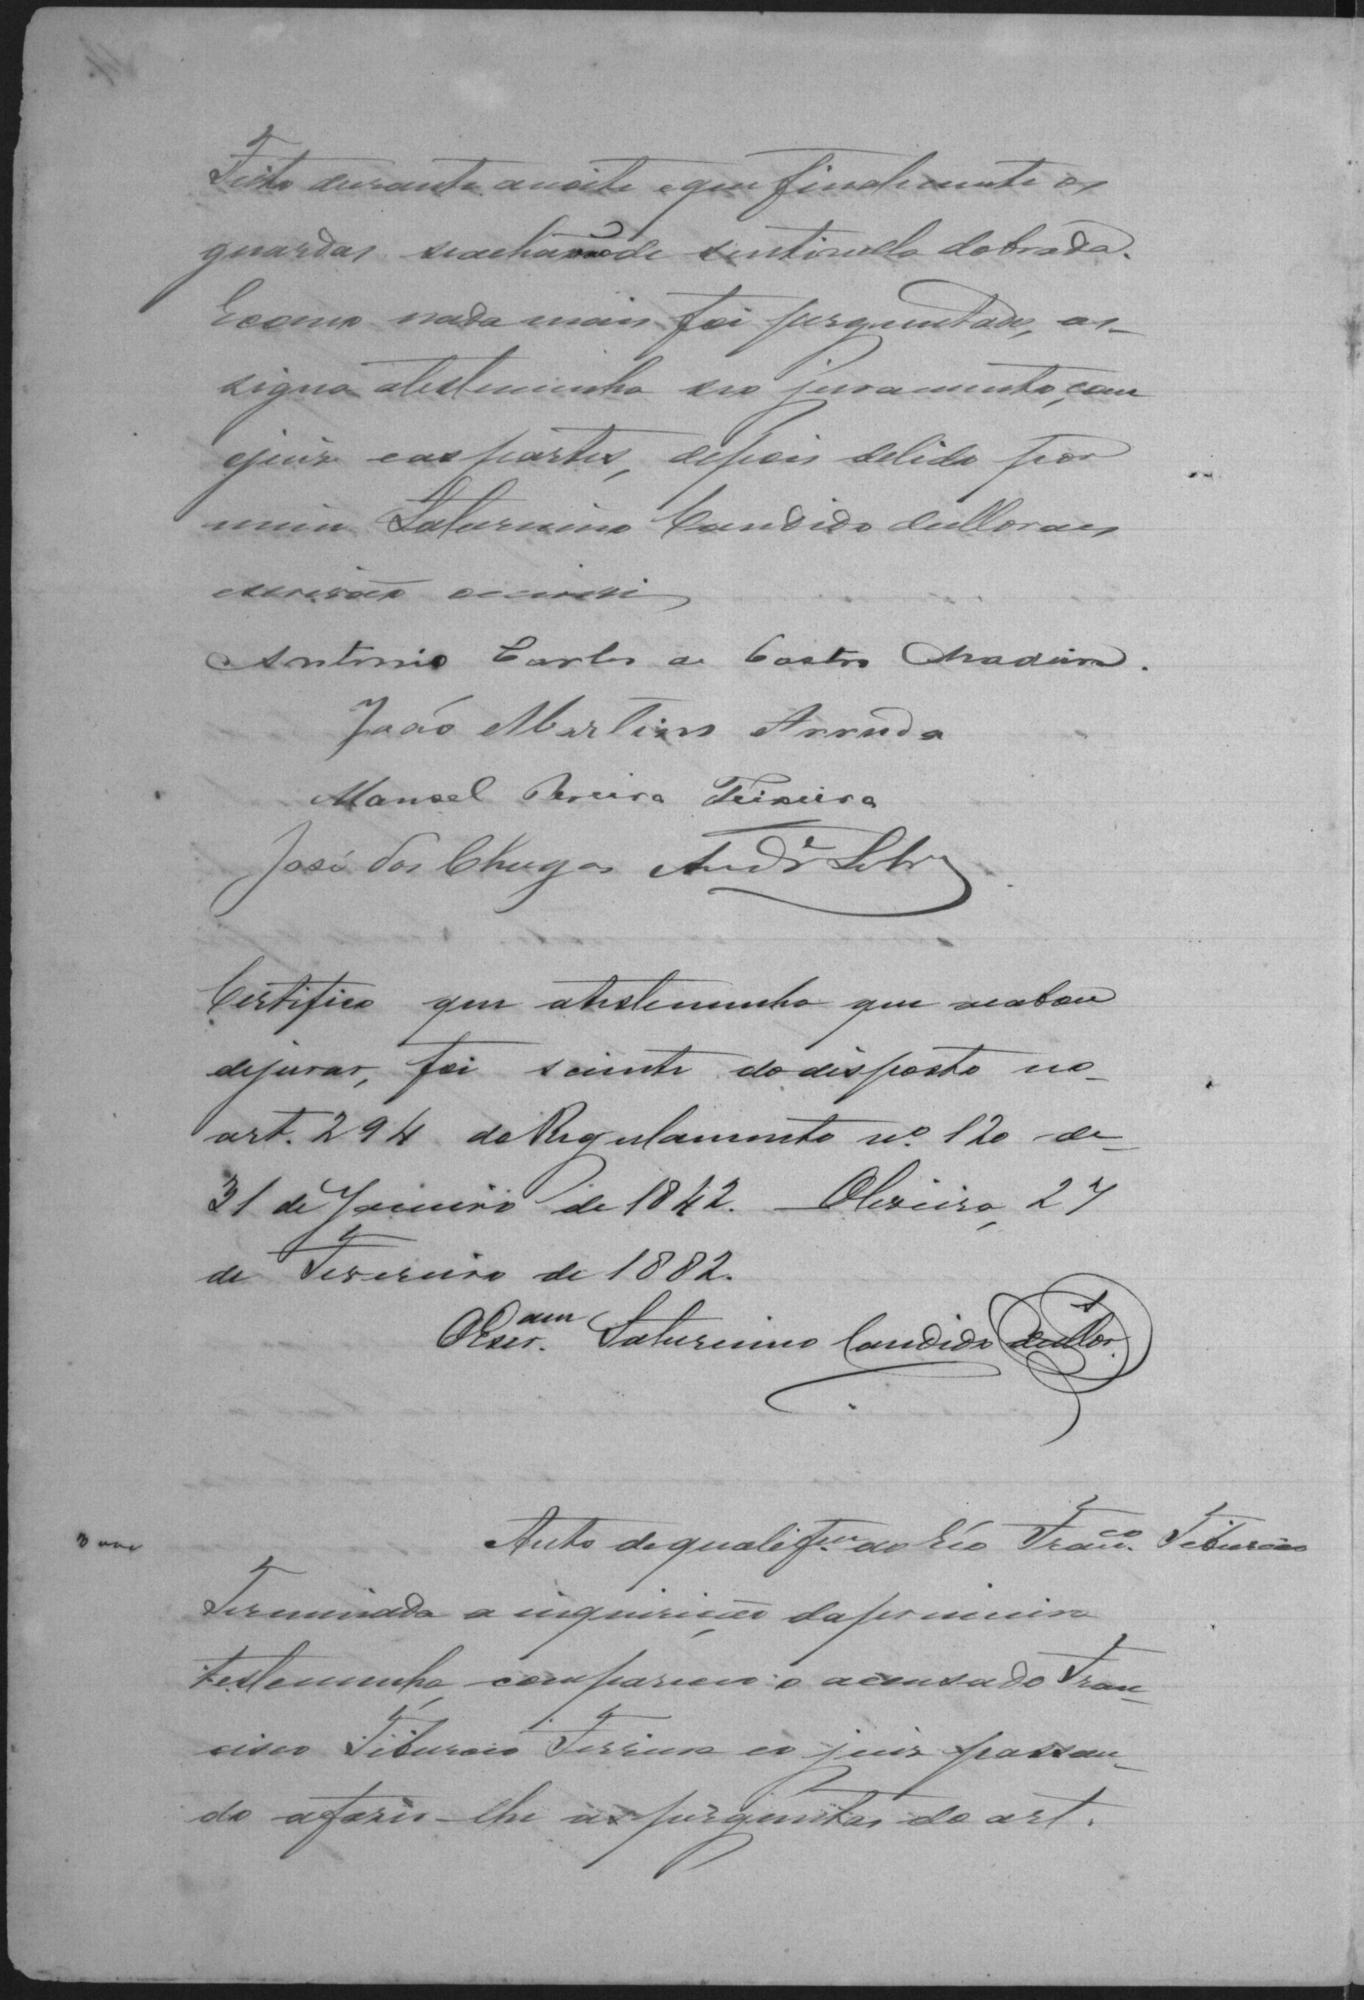 Feito durante anoite eque finalmente os
guardas seachavão de sentinella dobrada.
Ecomo nada mais foi perguntado, as-
signa atestemunha seo juramento, com
ojuis easpartes, depois delido por
mim Saturnino Candido deMoraes
escrivão escrevi
Antonio Carlos de Castro Madeira.
João Martins Arruda
Manoel Pereira Teixeira
José das Chagas Andr.e Silva
Certifico que atestemunha que acabou
dejurar, foi sciente dodisposto no
art. 294 do Regulamento nº. 120 de
31 de Janeiro de 1842. Oliveira, 27
de Fevereiro de 1882.
OEscr.am Saturnino Candido deMor.
Auto de qualif. do réo Franco. Tiburcio
Terminada a inquirição daprimeira
testemunha, compareceu o accusado Fran-
cisco Tiburcio Ferreira eo juiz passan-
do afazer-lhe asperguntas do art.